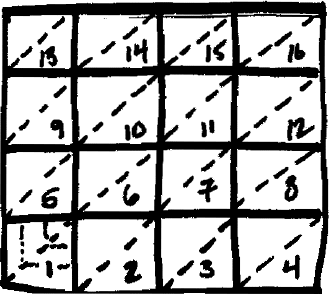 13 14 15 16
9 10 11 12
5 6 7 8
1 2 3 4